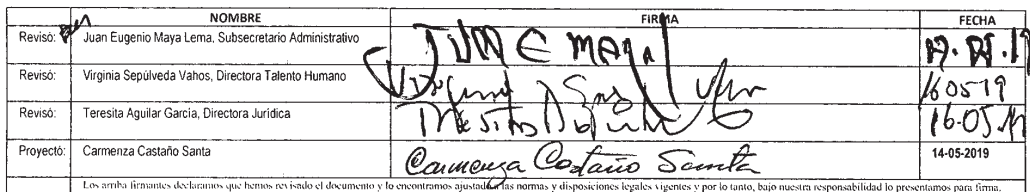 NOMBRE FIRMA FECHA
Revisó: Juan Eugenio Maya Lema, Subsecretario Administrativo JUAN E MAYA
Revisó: Virginia Sepúlveda Vahos, Directora Talento Humano Virginia 160519
Revisó: Teresita Aguilar García, Directora Jurídica Teresita Aguilar 16-05-19
Proyectó: Carmenza Castaño Santa Carmenza Castaño Santa 14-05-2019
Los arriba firmantes declaramos que hemos revisado el documento y lo encontramos ajustado a las normas y disposiciones legales vigentes y por lo tanto, bajo nuestra responsabilidad lo presentamos para firma.